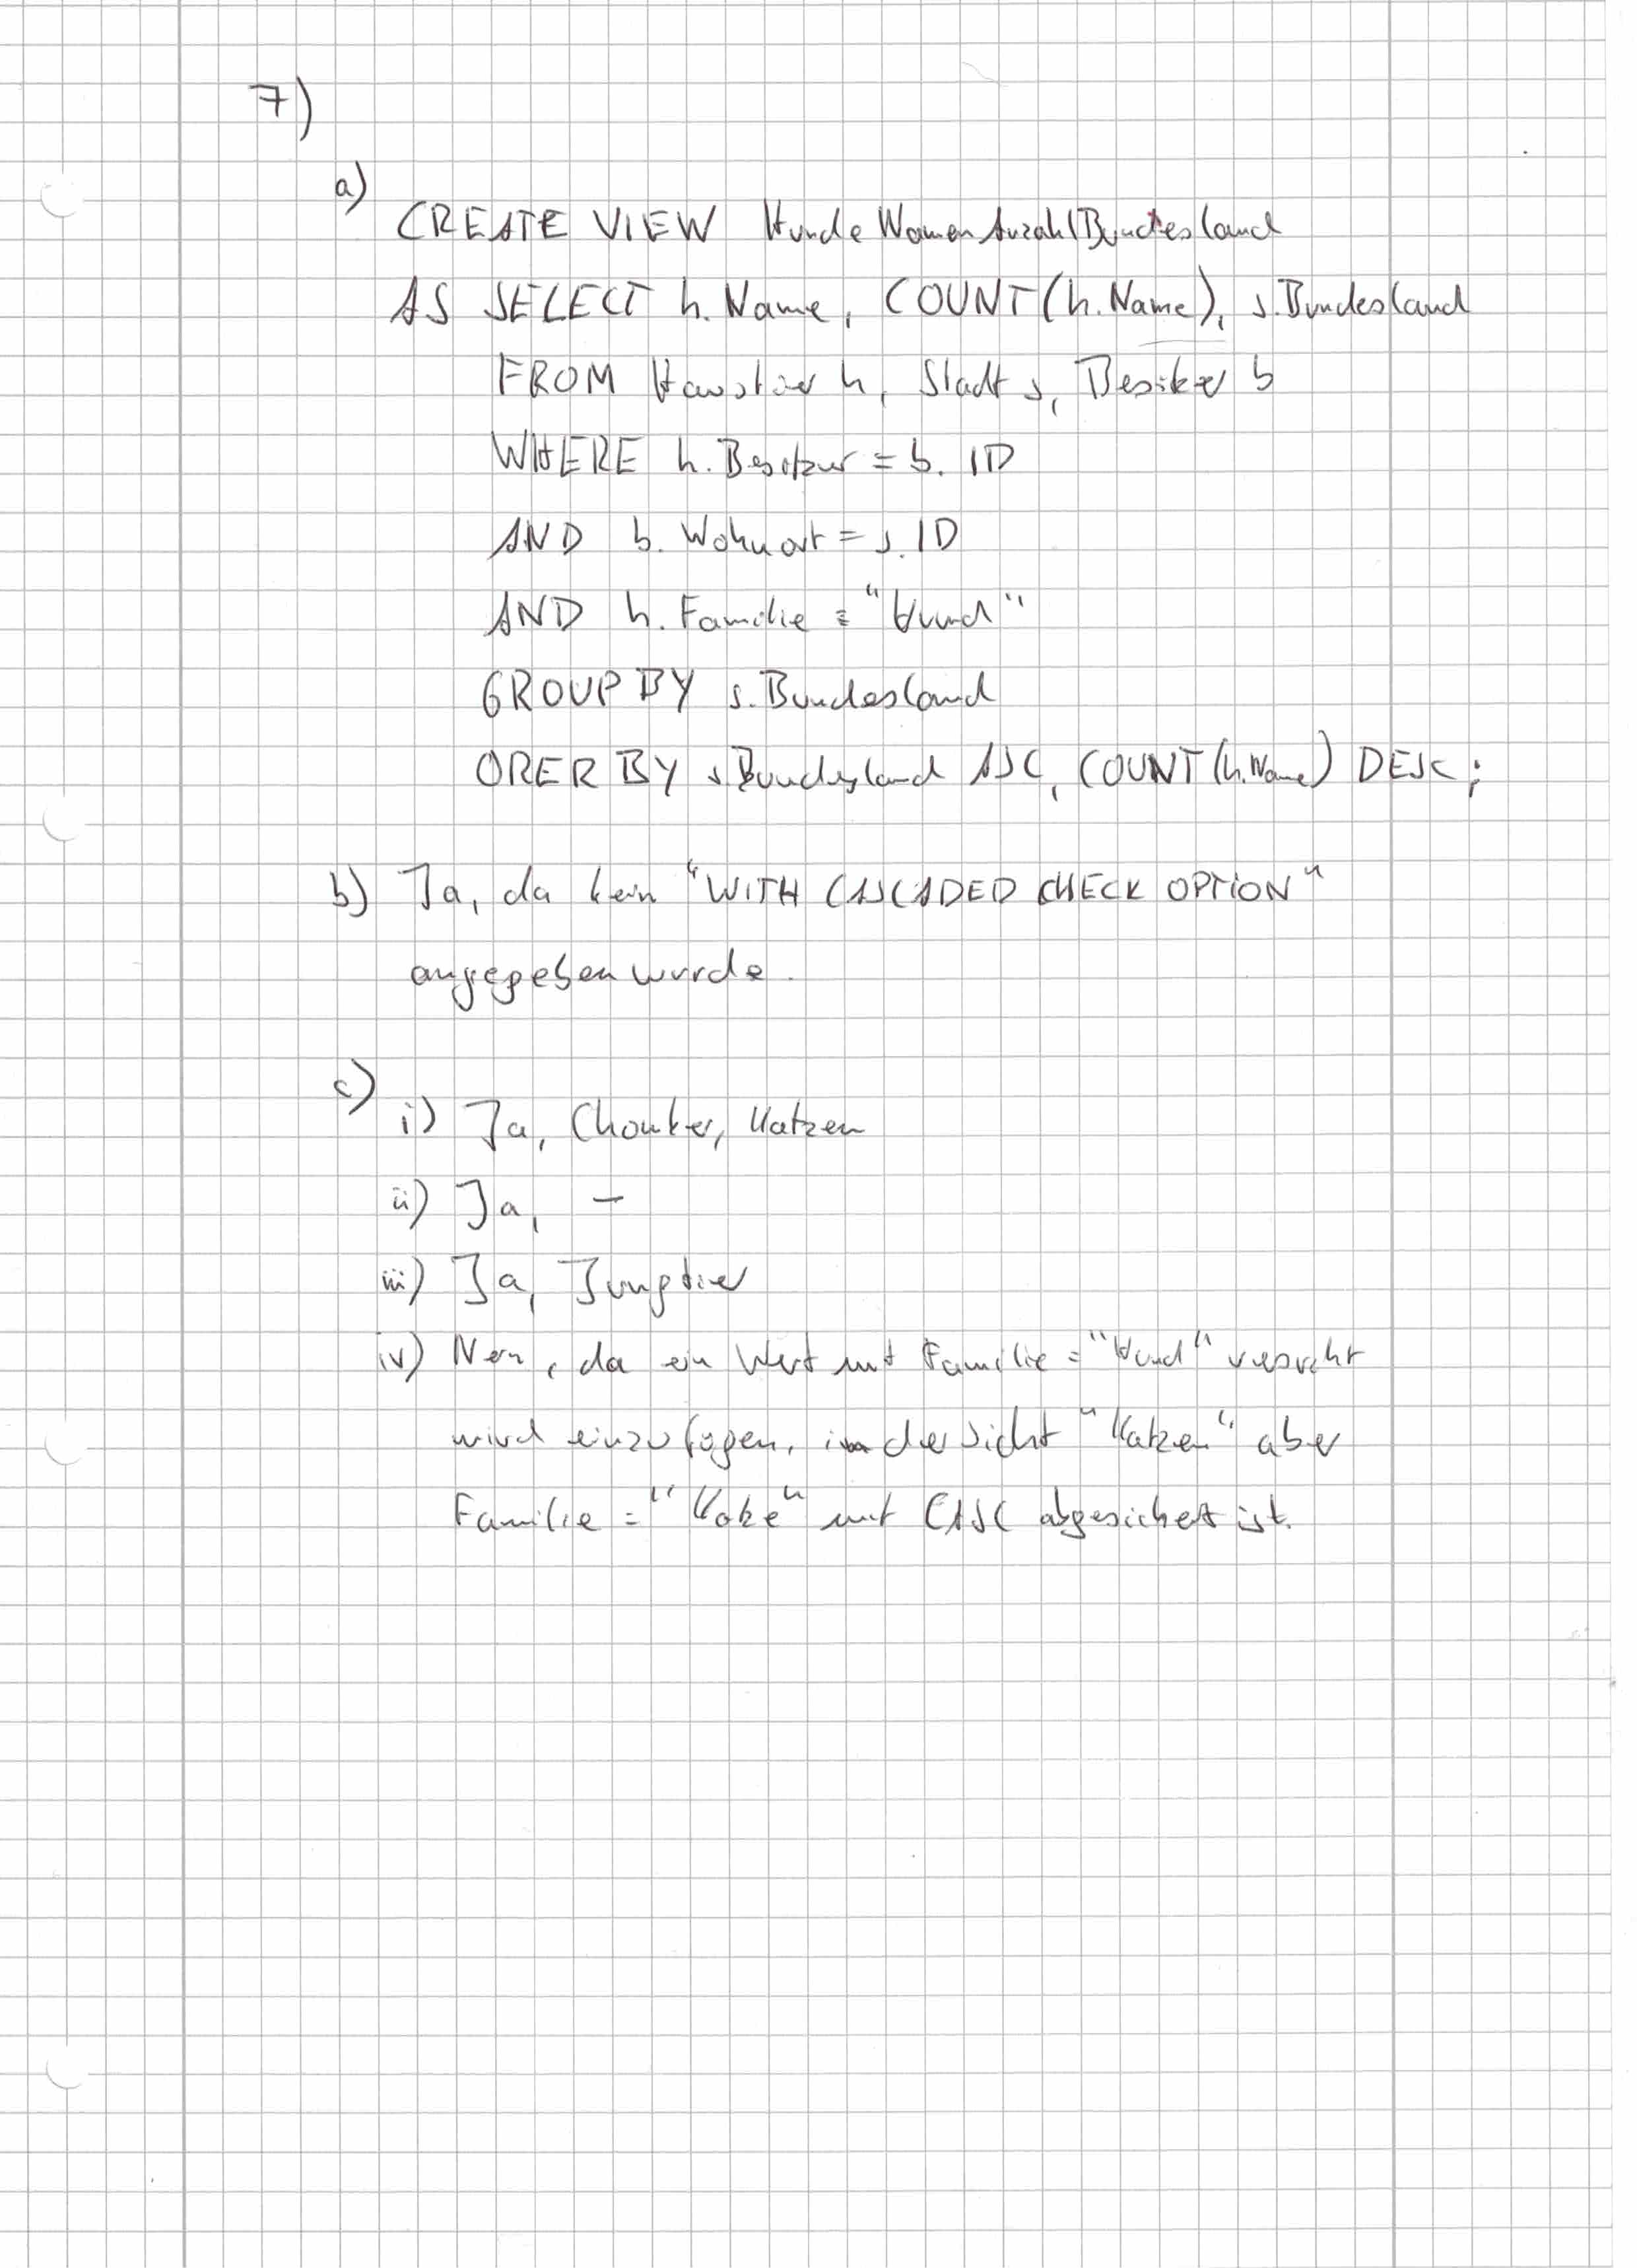 7)
a)
CREATE VIEW HundeNamenAnzahlBundesland
AS SELECT h.Name, COUNT(h.Name), s.Bundesland
FROM Haustier h, Stadt s, Besitzer b
WHERE h.Besitzer = b.ID
AND b.Wohnort = s.ID
AND h.Familie = "Hund"
GROUP BY s.Bundesland
ORER BY s.Bundesland ASC, COUNT(h.Name) DESC;
b) Ja, da kein "WITH CASCADED CHECK OPTION"
angegeben wurde.
c)
i) Ja, Chonker, Katzen
ii) Ja, -
iii) Ja, Jungtier
iv) Nein, da ein Wert mit Familie = "Hund" versucht
wird einzufügen, in der Sicht "Katzen" aber
Familie = "Katze" mit CASC abgesichert ist.